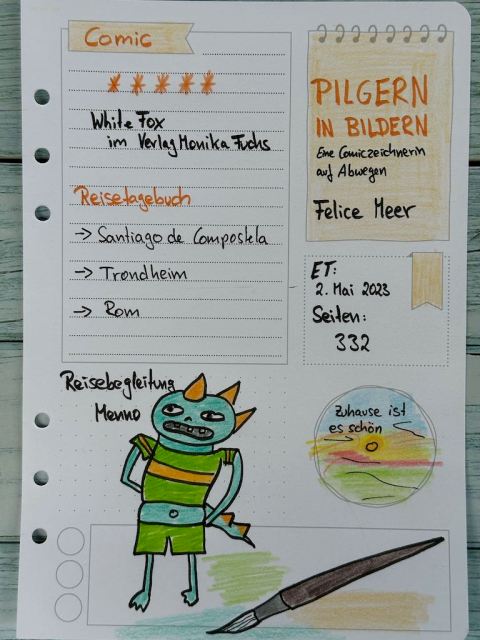 Comic
White Fox
im Verlag Monika Fuchs
Reisetagebuch
→ Santiago de Compostela
→ Trondheim
→ Rom
PILGERN
IN BILDERN
Eine Comiczeichnerin
auf Abwegen
Felice Meer
ET:
2. Mai 2023
Seiten:
332
Reisebegleitung
Menno
Zuhause ist
es schön